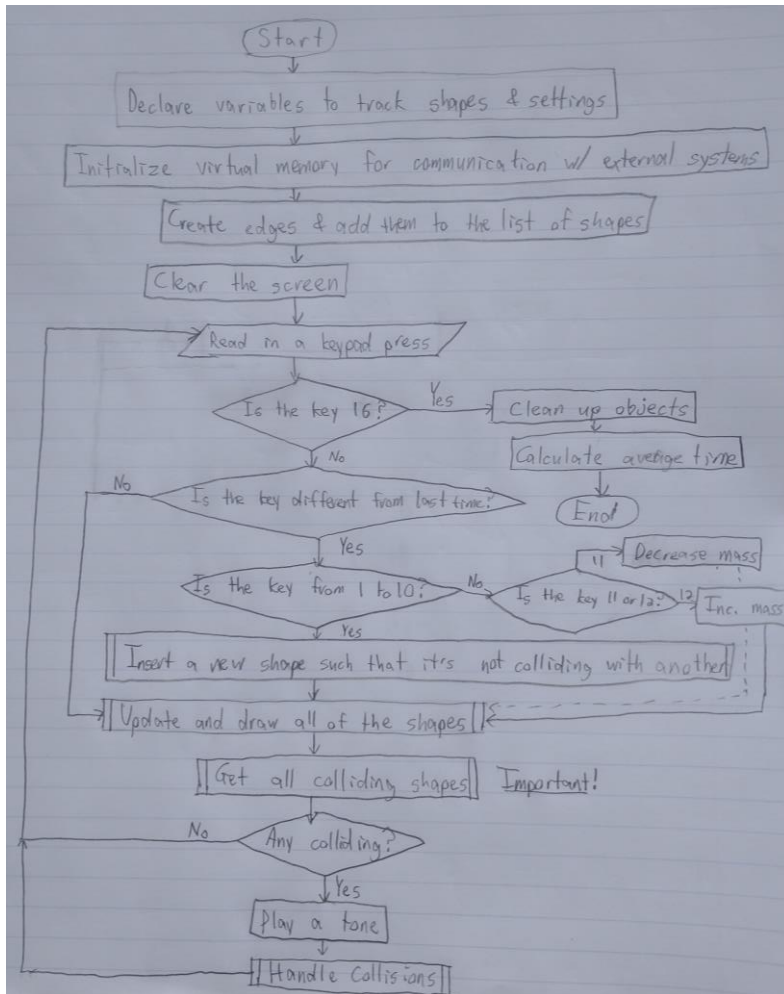 Start
Declare variables to track shapes & settings
Initialize virtual memory for communication w/ external systems
Create edges & add them to the list of shapes
Clear the screen
Read in a keypad press
Is the key 16?
Yes
Clean up objects
No
Calculate average time
No
Is the key different from last time?
End
Yes
11
Decrease mass
Is the key from 1 to 10?
No
Is the key 11 or 12?
12
Inc. mass
Yes
Insert a new shape such that it's not colliding with another
Update and draw all of the shapes
Get all colliding shapes
Important!
No
Any colliding?
Yes
Play a tone
Handle Collisions